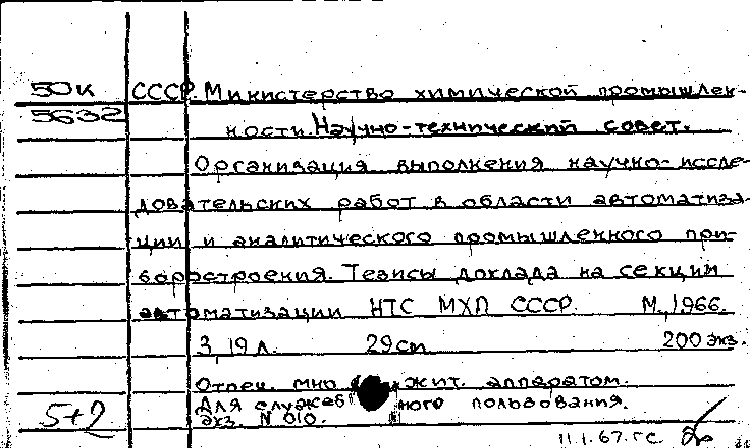 50к СССР. Министерство химической промышлен-
5632 ности. Научно-технический совет.
Организация выполнения научно-иссле-
довательских работ в области автоматиза-
ции и аналитического промышленного при-
боростроения. Тезисы доклада на секции
автоматизации НТС МХП СССР. М., 1966.
3,19 л. 29 см 200 экз.
Отпеч. множит. аппаратом.
Для служебного пользования.
5+2 Экз. N 010.
11.1.67. гс.